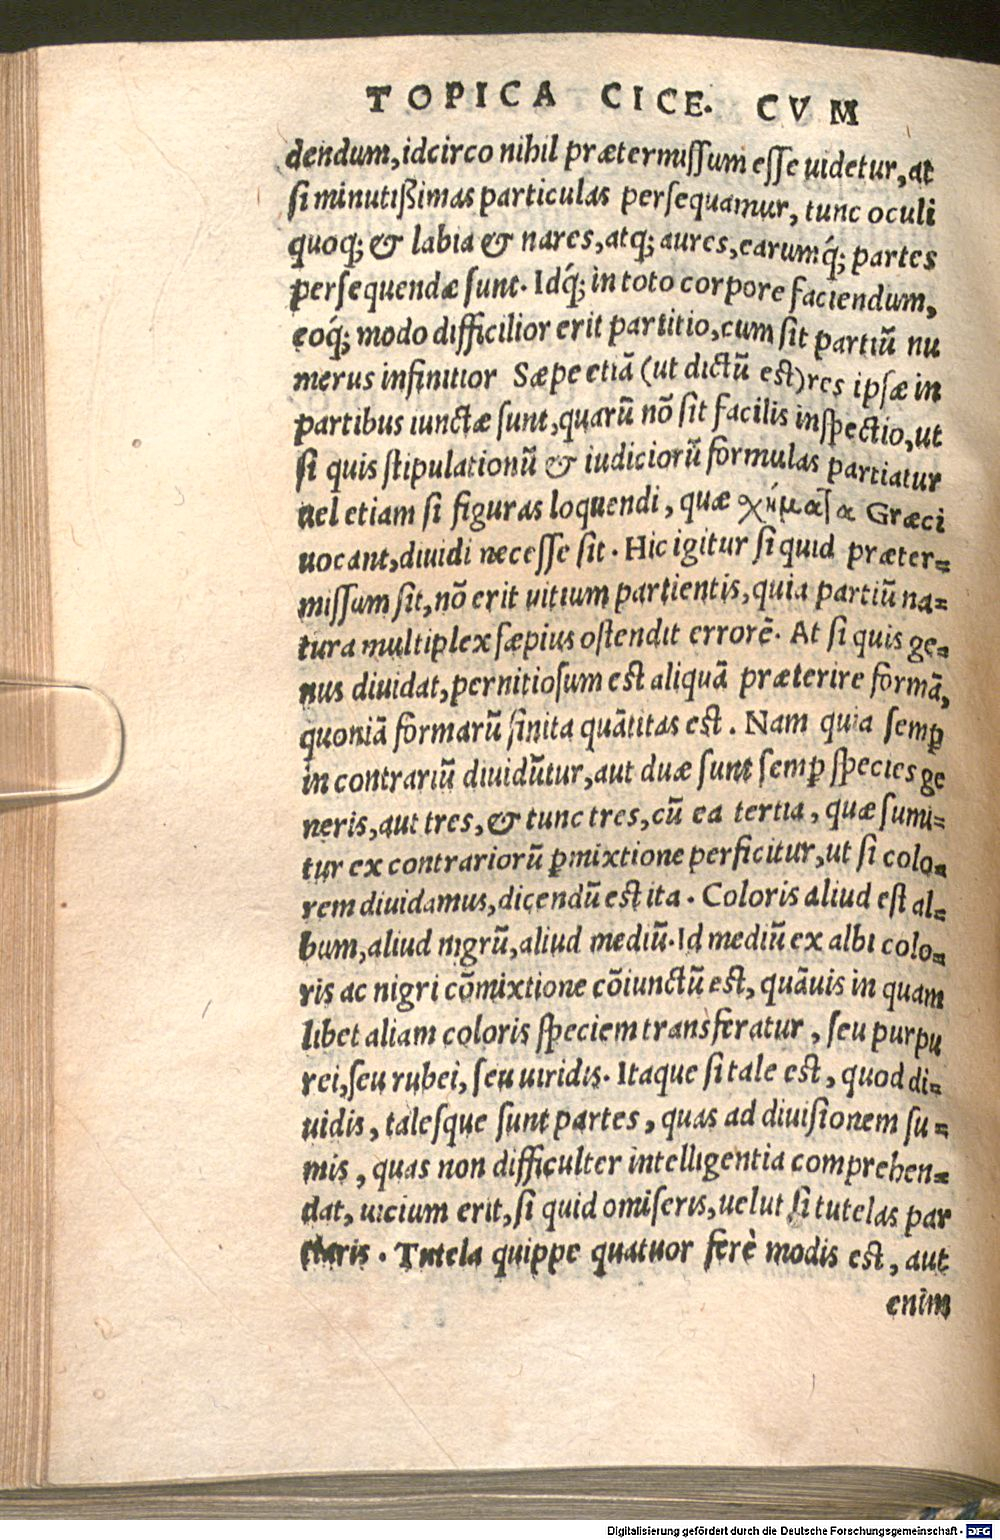 TOPICA CICE. CVM
dendum, idcirco nihil prætermissum esse uidetur, at
si minutißimas particulas persequamur, tunc oculi
quoq; & labia & nares, atq; aures, earumq́; partes
persequendæ sunt. Idq́; in toto corpore faciendum,
eoq́; modo difficilior erit partitio, cum sit partiū nu
merus infinitior Sæpe etiā (ut dictū est) res ipsæ in
partibus iunctæ sunt, quarū nō sit facilis inspectio, ut
si quis stipulationū & iudiciorū formulas partiatur
uel etiam si figuras loquendi, quæ χήματα Græci
uocant, diuidi necesse sit. Hic igitur si quid præter-
missum sit, nō erit uitium partientis, quia partiū na-
tura multiplex sæpius ostendit errorē. At si quis ge-
nus diuidat, pernitiosum est aliquā præterire formā,
quoniā formarū finita quātitas est. Nam quia semꝑ
in contrariū diuidūtur, aut duæ sunt semꝑ species ge
neris, aut tres, & tunc tres, cū ea tertia, quæ sumi-
tur ex contrariorū ꝑmixtione perficitur, ut si colo-
rem diuidamus, dicendū est ita. Coloris aliud est al-
bum, aliud nigrū, aliud mediū. Id mediū ex albi colo-
ris ac nigri cōmixtione cōiunctū est, quāuis in quam
libet aliam coloris speciem transferatur, seu purpu
rei, seu rubei, seu uiridis. Itaque si tale est, quod di-
uidis, talesque sunt partes, quas ad diuisionem su-
mis, quas non difficulter intelligentia comprehen-
dat, uicium erit, si quid omiseris, uelut si tutelas par
tiaris. Tutela quippe quatuor ferè modis est, aut
enim
Digitalisierung gefördert durch die Deutsche Forschungsgemeinschaft - DFG